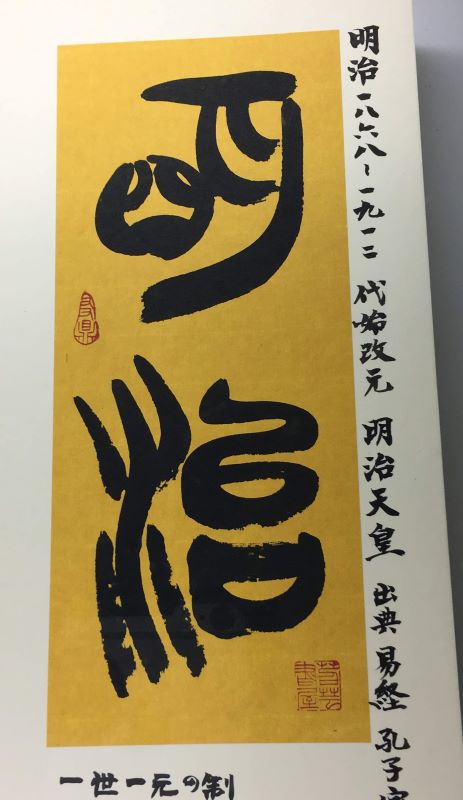 明治
明治一八六八〜一九一二 代始改元 明治天皇 出典 易経 孔子
一世一元の制